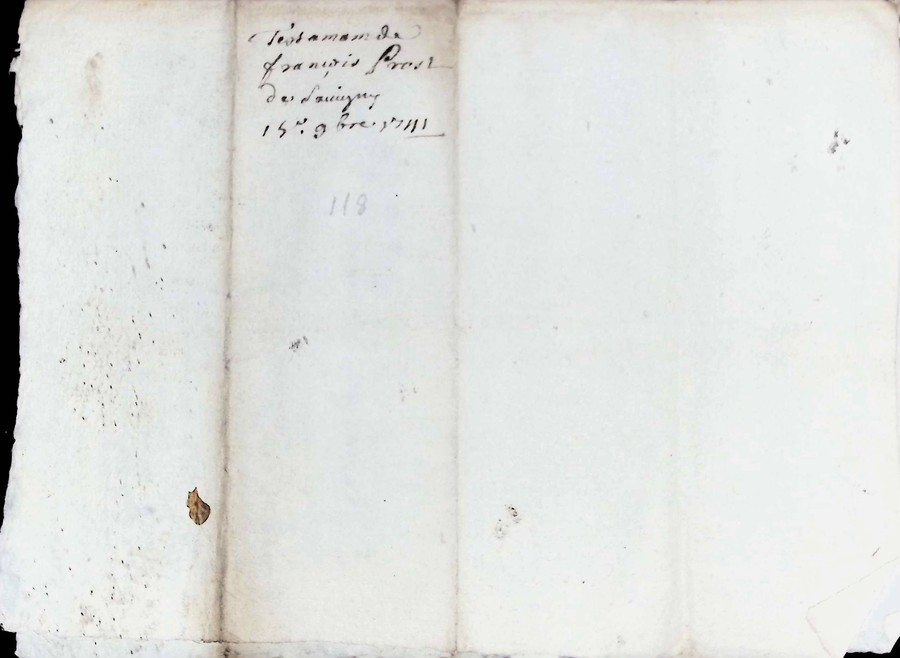 Testamam de
françois Prost
de Sauigny
15e. 9bre. 1711
118